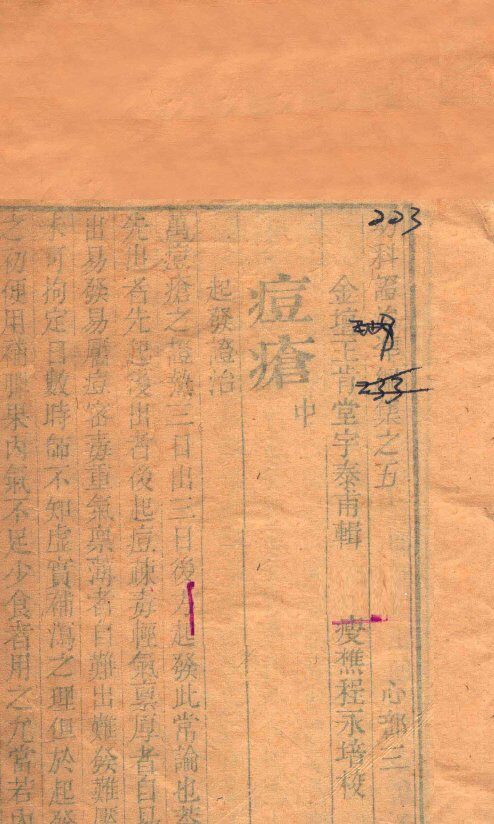 223
233
科證 集之五 心部三
金壇王肯堂宇泰甫輯 瘦樵程永培校
痘瘡中
起發證治
萬痘瘡之證熱三日出三日後方起發此常論也
先出者先起後出者後起痘疎毒輕氣稟厚者自
出易發易靨痘密毒重氣稟薄者自難出難發難靨
不可拘定日數時師不知虛實補瀉之理但於起發
之初便用補脾果內氣不足少食者用之允當若內